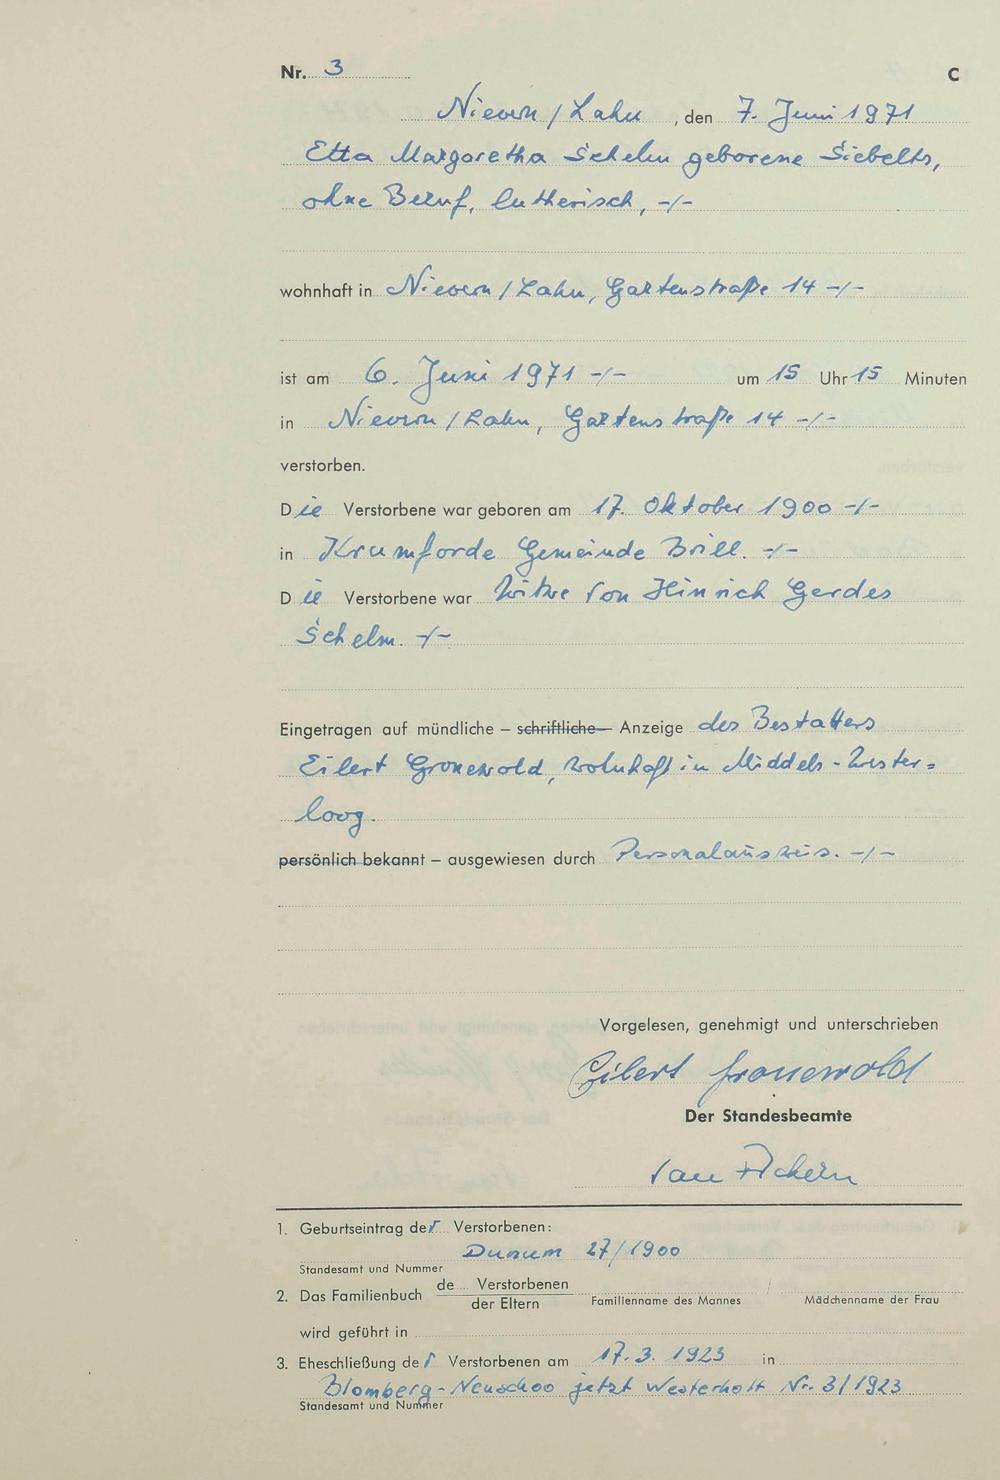 Nr. 3 C
Nievern/Lahn, den 7. Juni 1971
Etta Margaretha Schelm geborene Siebelts,
ohne Beruf, lutherisch, -/-
wohnhaft in Nievern/Lahn, Gartenstraße 14 -/-
ist am 6. Juni 1971 -/- um 15 Uhr 15 Minuten
in Nievern/Lahn, Gartenstraße 14 -/-
verstorben.
Die Verstorbene war geboren am 17. Oktober 1900 -/-
in Krumforde Gemeinde Brill. -/-
Die Verstorbene war Witwe von Hinrich Gerdes
Schelm. -/-
Eingetragen auf mündliche – schriftliche – Anzeige des Bestatters
Eilert Gronewold, wohnhaft in Middels-Wester=
loog.
persönlich bekannt – ausgewiesen durch Personalausweis. -/-
Vorgelesen, genehmigt und unterschrieben
Eilert Gronewold
Der Standesbeamte
van
1. Geburtseintrag der Verstorbenen:
Dunum 27/1900
Standesamt und Nummer
2. Das Familienbuch de Verstorbenen / der Eltern Familienname des Mannes / Mädchenname der Frau
wird geführt in
3. Eheschließung der Verstorbenen am 17.3.1923 in
Blomberg-Neuschoo jetzt Westerholt Nr. 3/1923
Standesamt und Nummer